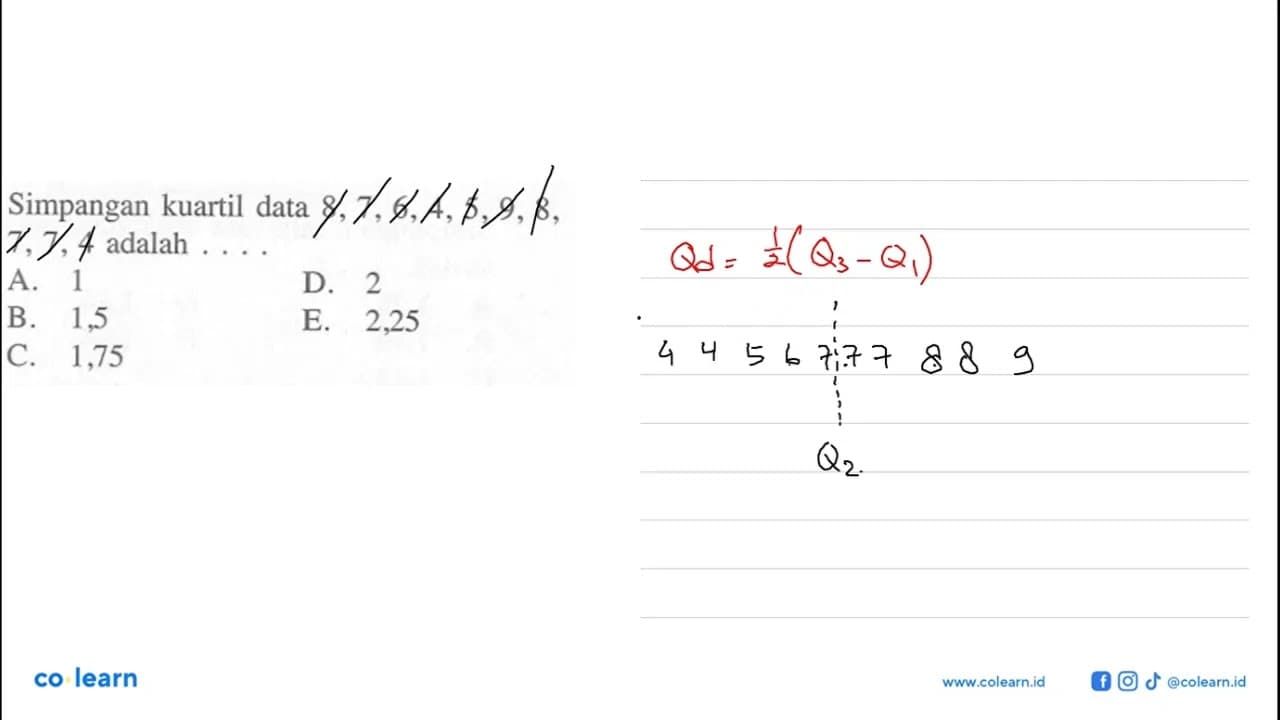 Simpangan kuartil data 8, 7, 6, 4, 5, 9, 8,
7, 7, 4 adalah . . . .
A. 1 D. 2
B. 1,5 E. 2,25
C. 1,75
Qd = 1/2 (Q3 - Q1)
4 4 5 6 7 7 7 8 8 9
Q2
co learn
www.colearn.id @colearn.id